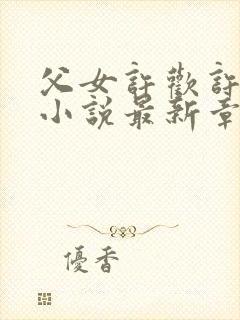 父女許歡許
小說最新章
優香